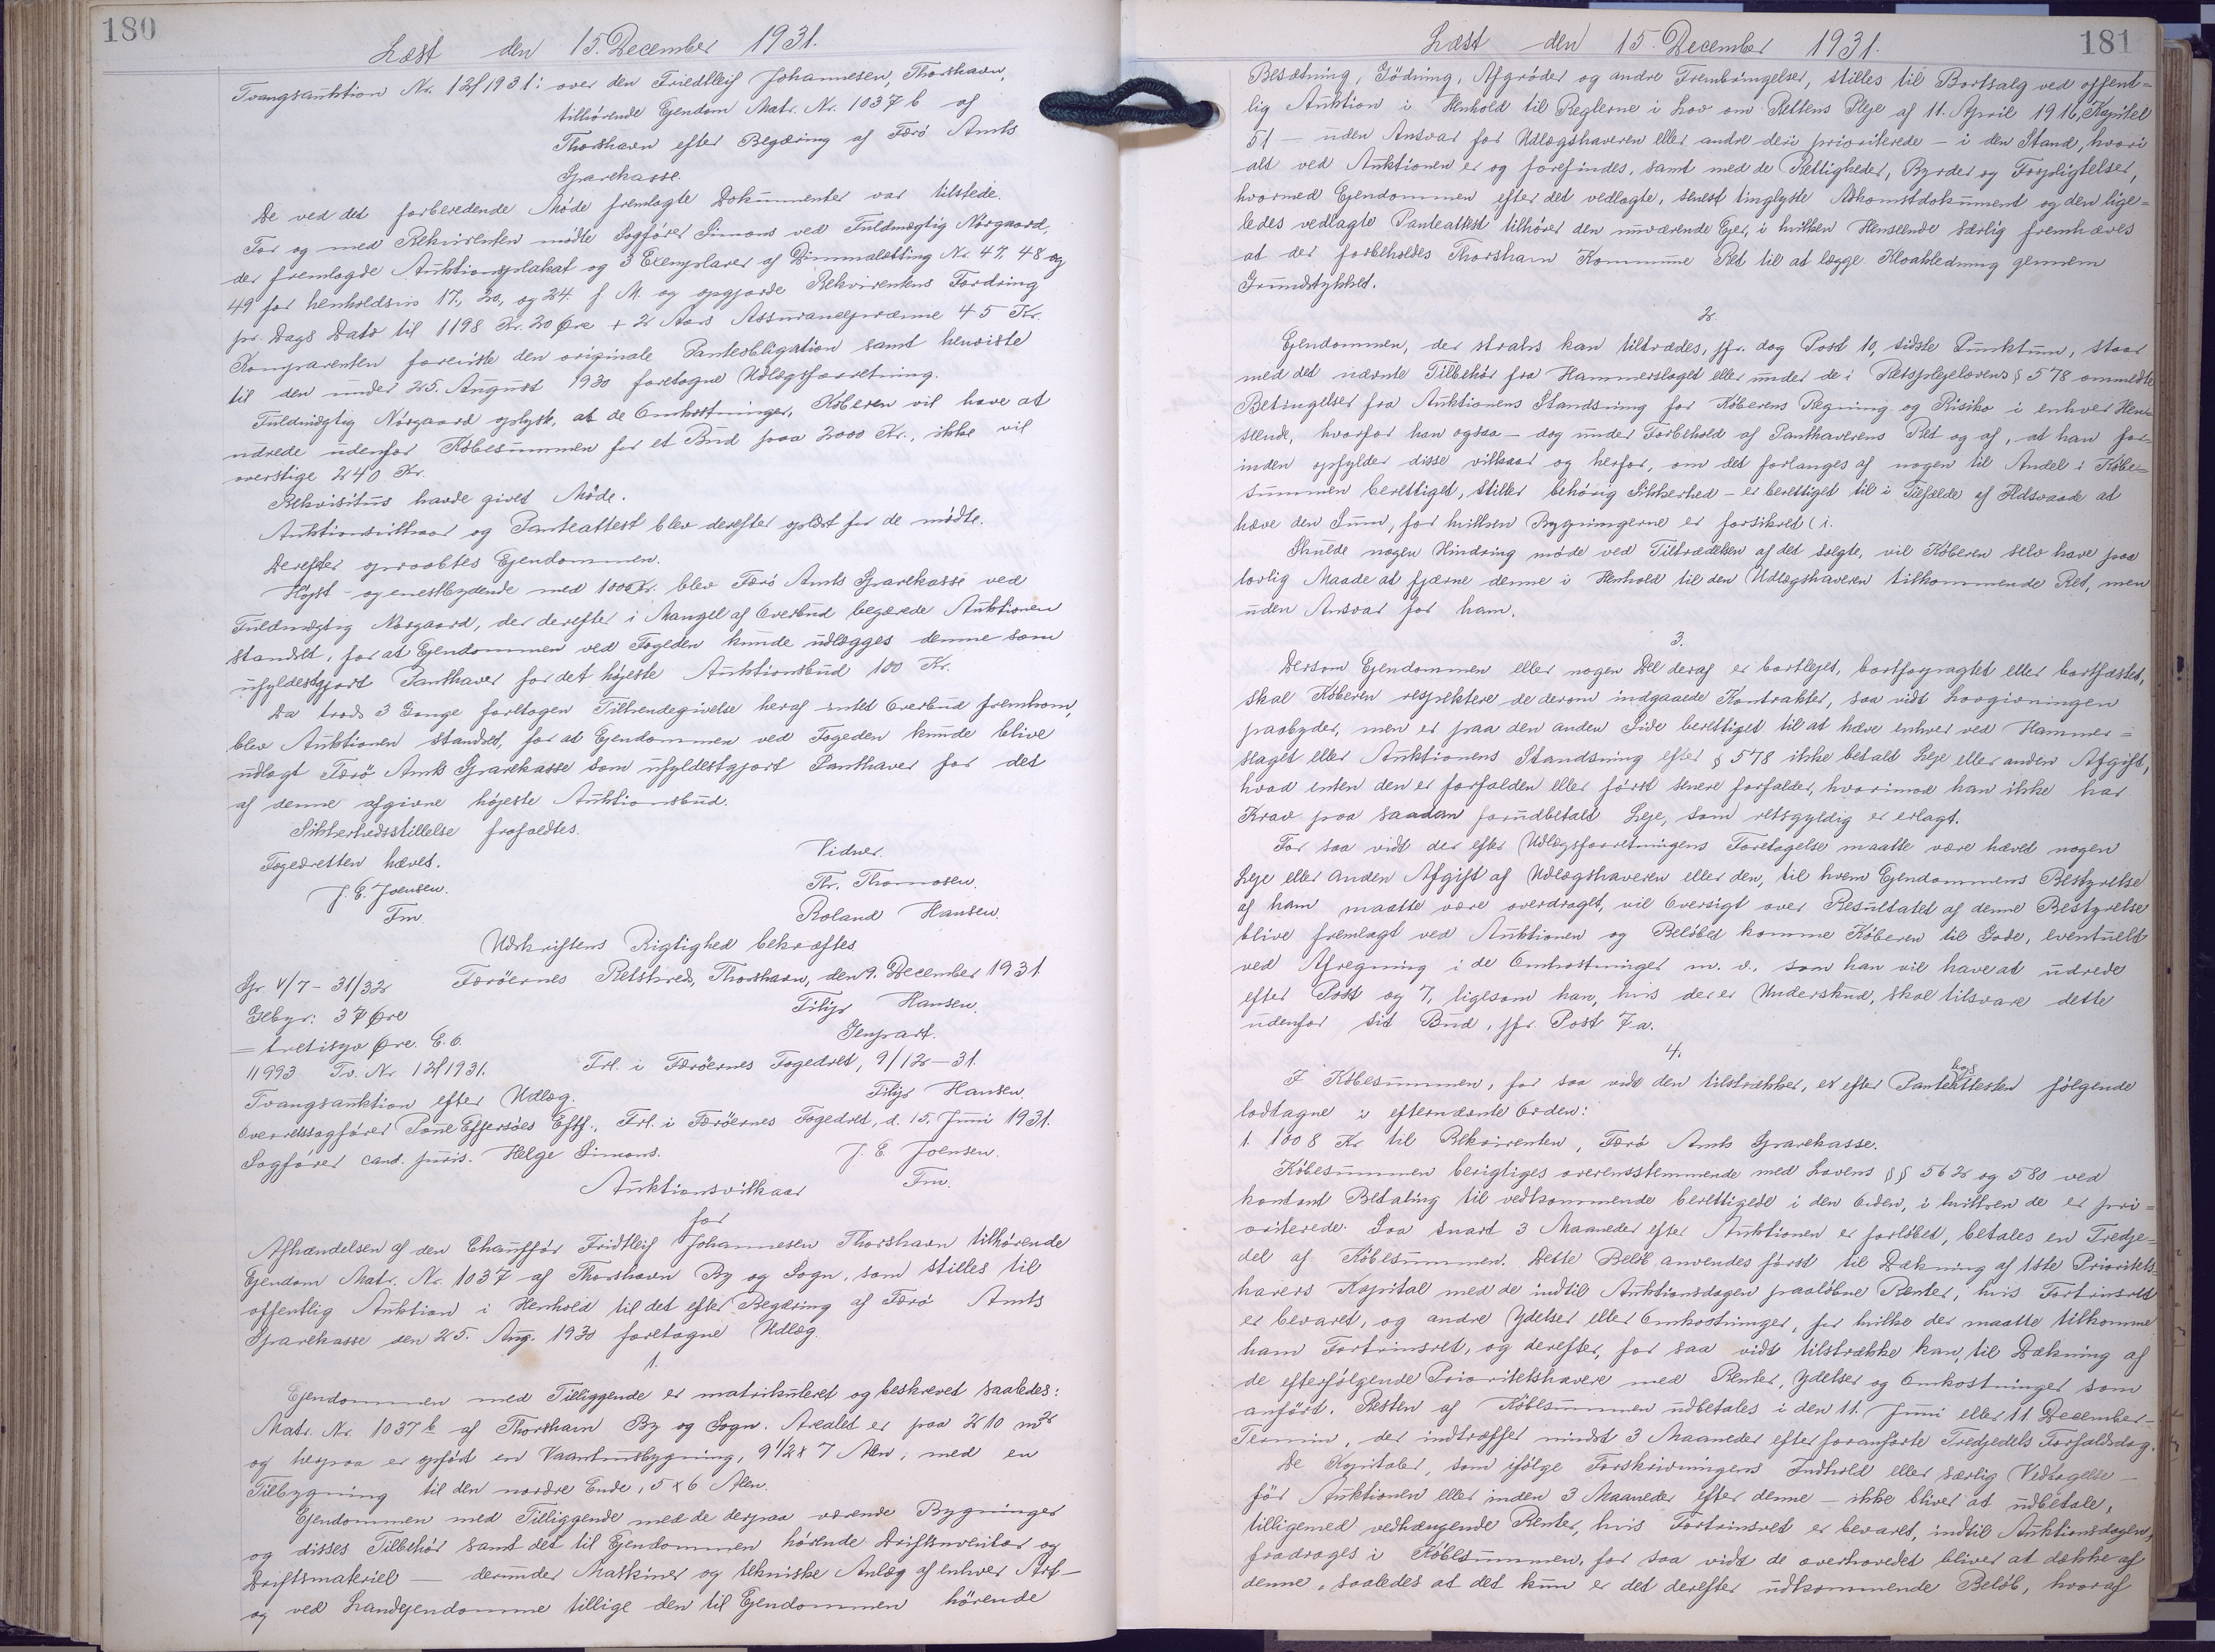 180
Læst den 15. December 1931.
Tvangsauktion Nr. 12/1931: over den Friedtleif Johannesen, Thorshavn,
tilhörende Ejendom Matr. Nr. 1037 b af
Thorshavn efter Begæring af Færö Amts
Sparekasse.
De ved det forberedende Möde fremlagte Dokumenter var tilstede.
For og med Rekvirenten mödte Sagförer Simons ved Fuldmægtig Nörgaard,
der fremlagde Auktionsplakat og 3 Exemplarer af Dimmalætting Nr. 47, 48 og
49 for henholdsvis 17., 20., og 24. f. M. og opgjorde Rekvirentens Fordring
pr. Dags Dato til 1198 Kr. 20 Øre + 2 Aars Assurancepræmie 45 Kr.
Komparenten foreviste den originale Panteobligation samt henviste
til den under 25. August 1930 foretagne Udlægsforretning.
Fuldmægtig Nörgaard oplyste, at de Omkostninger, Köberen vil have at
udrede udenfor Köbesummen for et Bud paa 2000 Kr., ikke vil
overstige 240 Kr.
Rekvisitus havde givet Möde.
Auktionsvilkaar og Panteattest blev derefter oplæst for de mödte.
Derefter opraabtes Ejendommen.
Höjst- og enestbydende med 100 Kr. blev Færö Amts Sparekasse ved
Fuldmægtig Nörgaard, der derefter i Mangel af Overbud begærede Auktionen
standset, for at Ejendommen ved Fogden kunde udlægges denne som
ufyldestgjort Panthaver for det höjeste Auktionsbud 100 Kr.
Da trods 3 Gange foretagen Tilkendegivelse heraf intet Overbud fremkom,
blev Auktionen standset, for at Ejendommen ved Fogeden kunde blive
udlagt Færö Amts Sparekasse som ufyldestgjort Panthaver for det
af denne afgivne höjeste Auktionsbud.
Sikkerhedsstillelse frafaldtes.
Fogedretten hævet.
Vidner.
J. E. Joensen.
Th. Thomasen.
Fm.
Roland Hansen.
Udskriftens Rigtighed bekræftes
Færöernes Retskreds, Thorshavn, den 9. December 1931
Gr. V/7 - 31/32
Filip Hansen.
Gebyr: 37 Øre
Genpart.
= tretisyv Øre. E. O.
11993 Tv. Nr. 12/1931.
Frl. i Færöernes Fogedret, 9/12 - 31.
Tvangsauktion efter Udlæg.
Filip Hansen.
Overretssagförer Pone Effersöes Eftf., Frl. i Færöernes Fogedret, d. 15. Juni 1931.
Sagförer cand. juris. Helge Simons.
J. E Joensen.
Auktionsvilkaar
Fm.
for
Afhændelsen af den Chauffør Fridtleif Johannesen Thorshavn tilhörende
Ejendom Matr. Nr. 1037 af Thorshavn By og Sogn, som stilles til
offentlig Auktion i Henhold til det efter Begæring af Færö Amts
Sparekasse den 25. Aug. 1930 foretagne Udlæg.
1.
Ejendommen med Tilliggende er matrikuleret og beskrevet saaledes:
Matr. Nr. 1037 b af Thorshavn By og Sogn. Arealet er paa 210 m2
og herpaa er opfört en Vaaningsbygning, 9 1/2 x 7 Alen, med en
Tilbygning til den nordre Ende, 5 x 6 Alen.
Ejendommen med Tilliggende med de derpaa værende Bygninger
og disses Tilbehör samt det til Ejendommen hörende Driftsinventar og
Driftsmateriel - derunder Maskiner og tekniske Anlæg af enhver Art -
og ved Landejendomme tillige den til Ejendommen hörende
181
Læst den 15. December 1931.
Besætning, Gödning, Afgröder og andre Frembringelser, stilles til Bortsalg ved offent=
lig Auktion i Henhold til Reglerne i Lov om Rettens Pleje af 11. April 1916, Kapitel
51 - uden Ansvar for Udlægshaveren eller andre deri prioriterede - i den Stand, hvori
alt ved Auktionen er og forefindes, samt med de Rettigheder, Byrder og Forpligtelser,
hvormed Ejendommen efter det vedlagte, senest tinglyste Adkomstdokument og den lige=
ledes vedlagte Panteattest tilhörer den nuværende Ejer, i hvilken Henseende særlig fremhæves
at der forbeholdes Thorshavn Kommune Ret til at lægge Kloakledning gennem
Grundstykket.
2.
Ejendommen, der straks kan tiltrædes, jfr. dog Post 10, sidste Punktum, staar
med det nævnte Tilbehör fra Hammerslaget eller under de i Retsplejelovens § 578 ommeldte
Betingelser fra Auktionens Standsning for Köberens Regning og Risiko i enhver Hen=
seende, hvorfor han ogsaa - dog under Forbehold af Panthaverens Ret og af, at han for=
inden opfylder disse vilkaar og herfor, om det forlanges af nogen til Andel i Köbe=
summen berettiget, stiller behörig Sikkerhed - er berettiget til i Tilfælde af Ildsvaade at
hæve den Sum, for hvilken Bygningerne er forsikret (i.
Skulde nogen Hindring möde ved Tiltrædelsen af det solgte, vil Köberen selv have paa
lovlig Maade at fjærne denne i Henhold til den Udlægshaveren tilkommende Ret, men
uden Ansvar for ham.
3.
Dersom Ejendommen eller nogen Del deraf er bortlejet, bortforpagtet eller bortfæstet,
skal Köberen respektere de derom indgaaede Kontrakter, saa vidt Lovgivningen
paabyder, men er paa den anden Side berettiget til at hæve enhver ved Hammer=
slaget eller Auktionens Standsning efter § 578 ikke betalt Leje eller anden Afgift,
hvad enten den er forfalden eller först senere forfalder, hvorimod han ikke har
Krav paa saadan forudbetalt Leje, som retsgyldig er erlagt.
For saa vidt der efter Udlægsforretningens Foretagelse maatte være hævet nogen
Leje eller anden Afgift af Udlægshaveren eller den, til hvem Ejendommens Bestyrelse
af ham maatte være overdraget, vil Oversigt over Resultatet af denne Bestyrelse
blive fremlagt ved Auktionen og Belöbet komme Köberen til Gode, eventuelt
ved Afregning i de Omkostninger m. v. som han vil have at udrede
efter Post og 7, ligesom han, hvis der er Underskud, skal tilsvare dette
udenfor sit Bud, jfr. Post 7 a.
4.
I Köbesummen, for saa vidt den tilstrækker, er efter Panteattesten følgende
lodtagne i efternævnte Orden:
1. 1008 Kr til Rekvirenten, Færö Amts Sparekasse.
Köbesummen berigtiges overensstemmende med Lovens §§ 562 og 580 ved
kontant Betaling til vedkommende berettigede i den Orden, i hvilken de er pri=
oriterede. Saa snart 3 Maaneder efter Auktionen er forløbet, betales en Tredje=
del af Köbesummen. Dette Belöb anvendes först til Dækning af 1ste Prioritets=
havers Kapital med de indtil Auktionsdagen paalöbne Renter, hvis Fortrinsret
er bevaret, og andre Ydelser eller Omkostninger, for hvilke der maatte tilkomme
ham Fortrinsret, og derefter, for saa vidt tilstrække kan, til Dækning af
de efterfölgende Prioritetshavere med Renter, Ydelser og Omkostninger som
anfört. Resten af Köbesummen udbetales i den 11. Juni eller 11. December-
Termin, der indtræffer mindst 3 Maaneder efter foranförte Tredjedels Forfaldsdag.
De Kapitaler, som ifölge Forskrivningens Indhold eller særlig Vedtagelse -
för Auktionen eller inden 3 Maaneder efter denne - ikke bliver at udbetale,
tilligemed vedhængende Renter, hvis Fortrinsret er bevaret, indtil Auktionsdagen,
fradrages i Köbesummen, for saa vidt de overhovedet bliver at dække af
denne, saaledes at det kun er det derefter udkommende Belöb, hvoraf